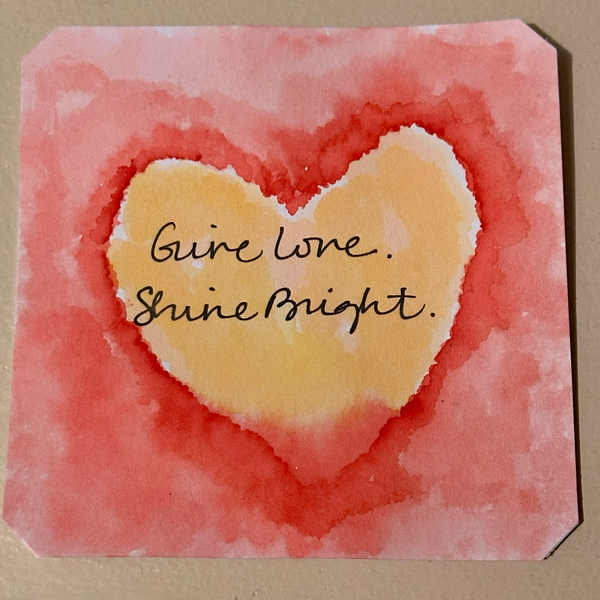 Give Love.
Shine Bright.